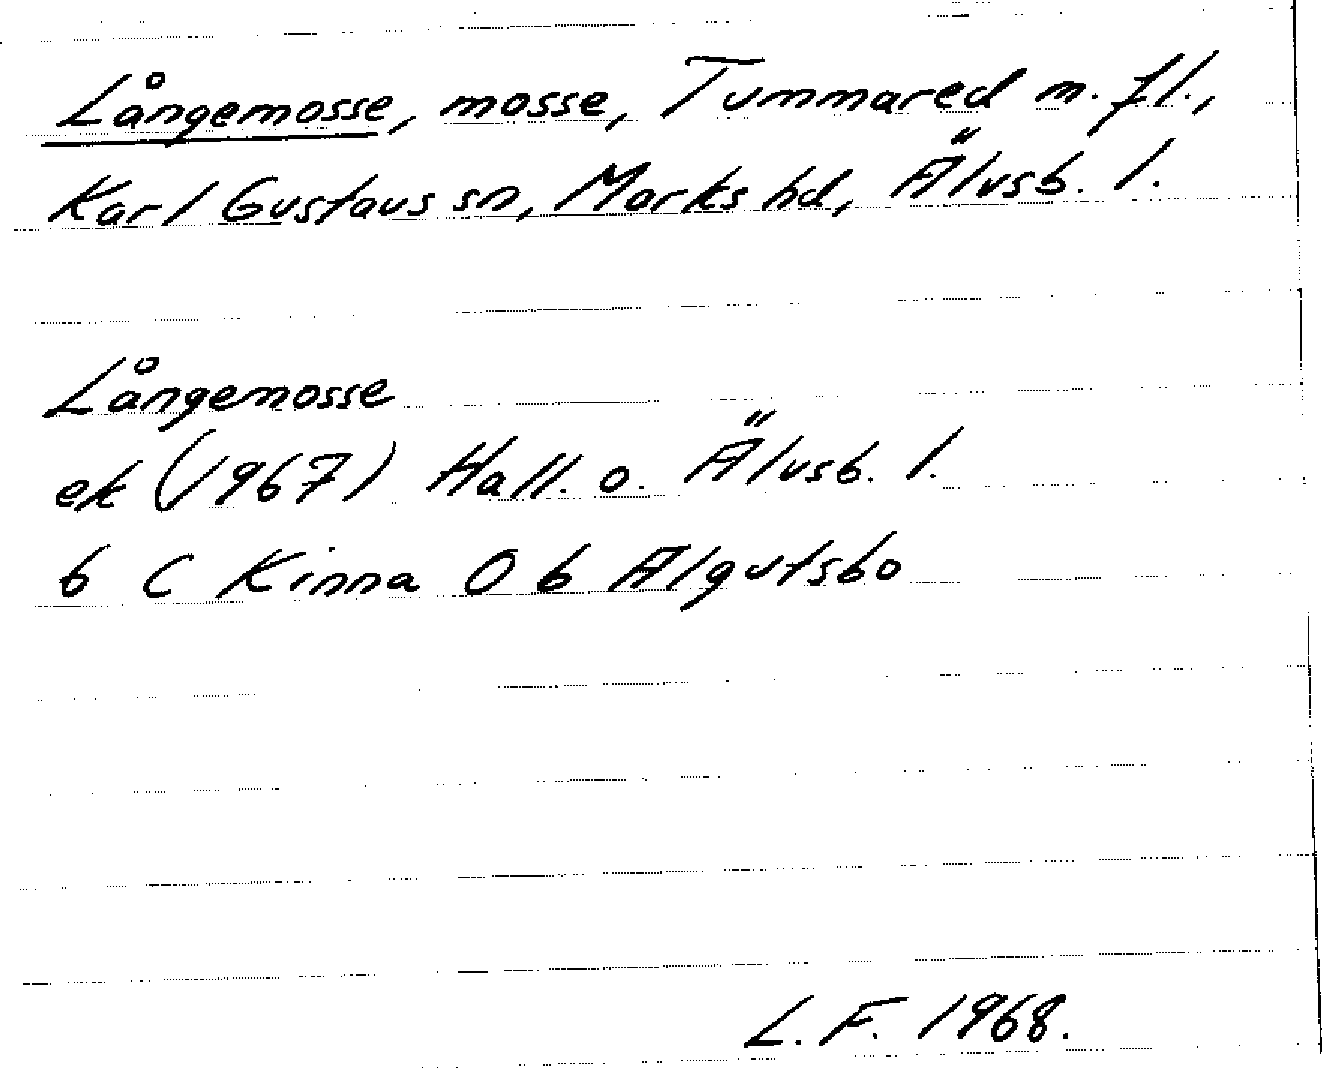 Långemosse, mosse, Tummared m. fl.,
Karl Gustavs sn, Marks hd, Älvsb. l.
Långemosse
ek (1967) Hall. o. Älvsb. l.
6 C Kinna 0 b Älgutsbo
L. F. 1968.